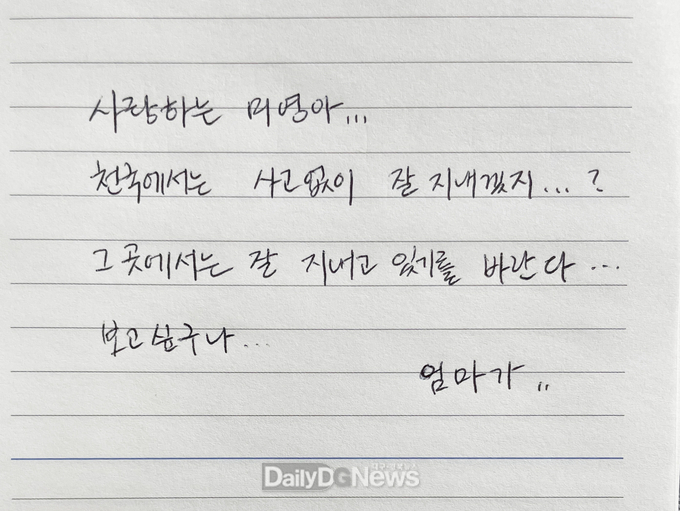 사랑하는 미영아...
천국에서는 사고없이 잘 지내겠지...?
그 곳에서는 잘 지내고 있기를 바란다...
보고싶구나...
엄마가..
DailyDGNews